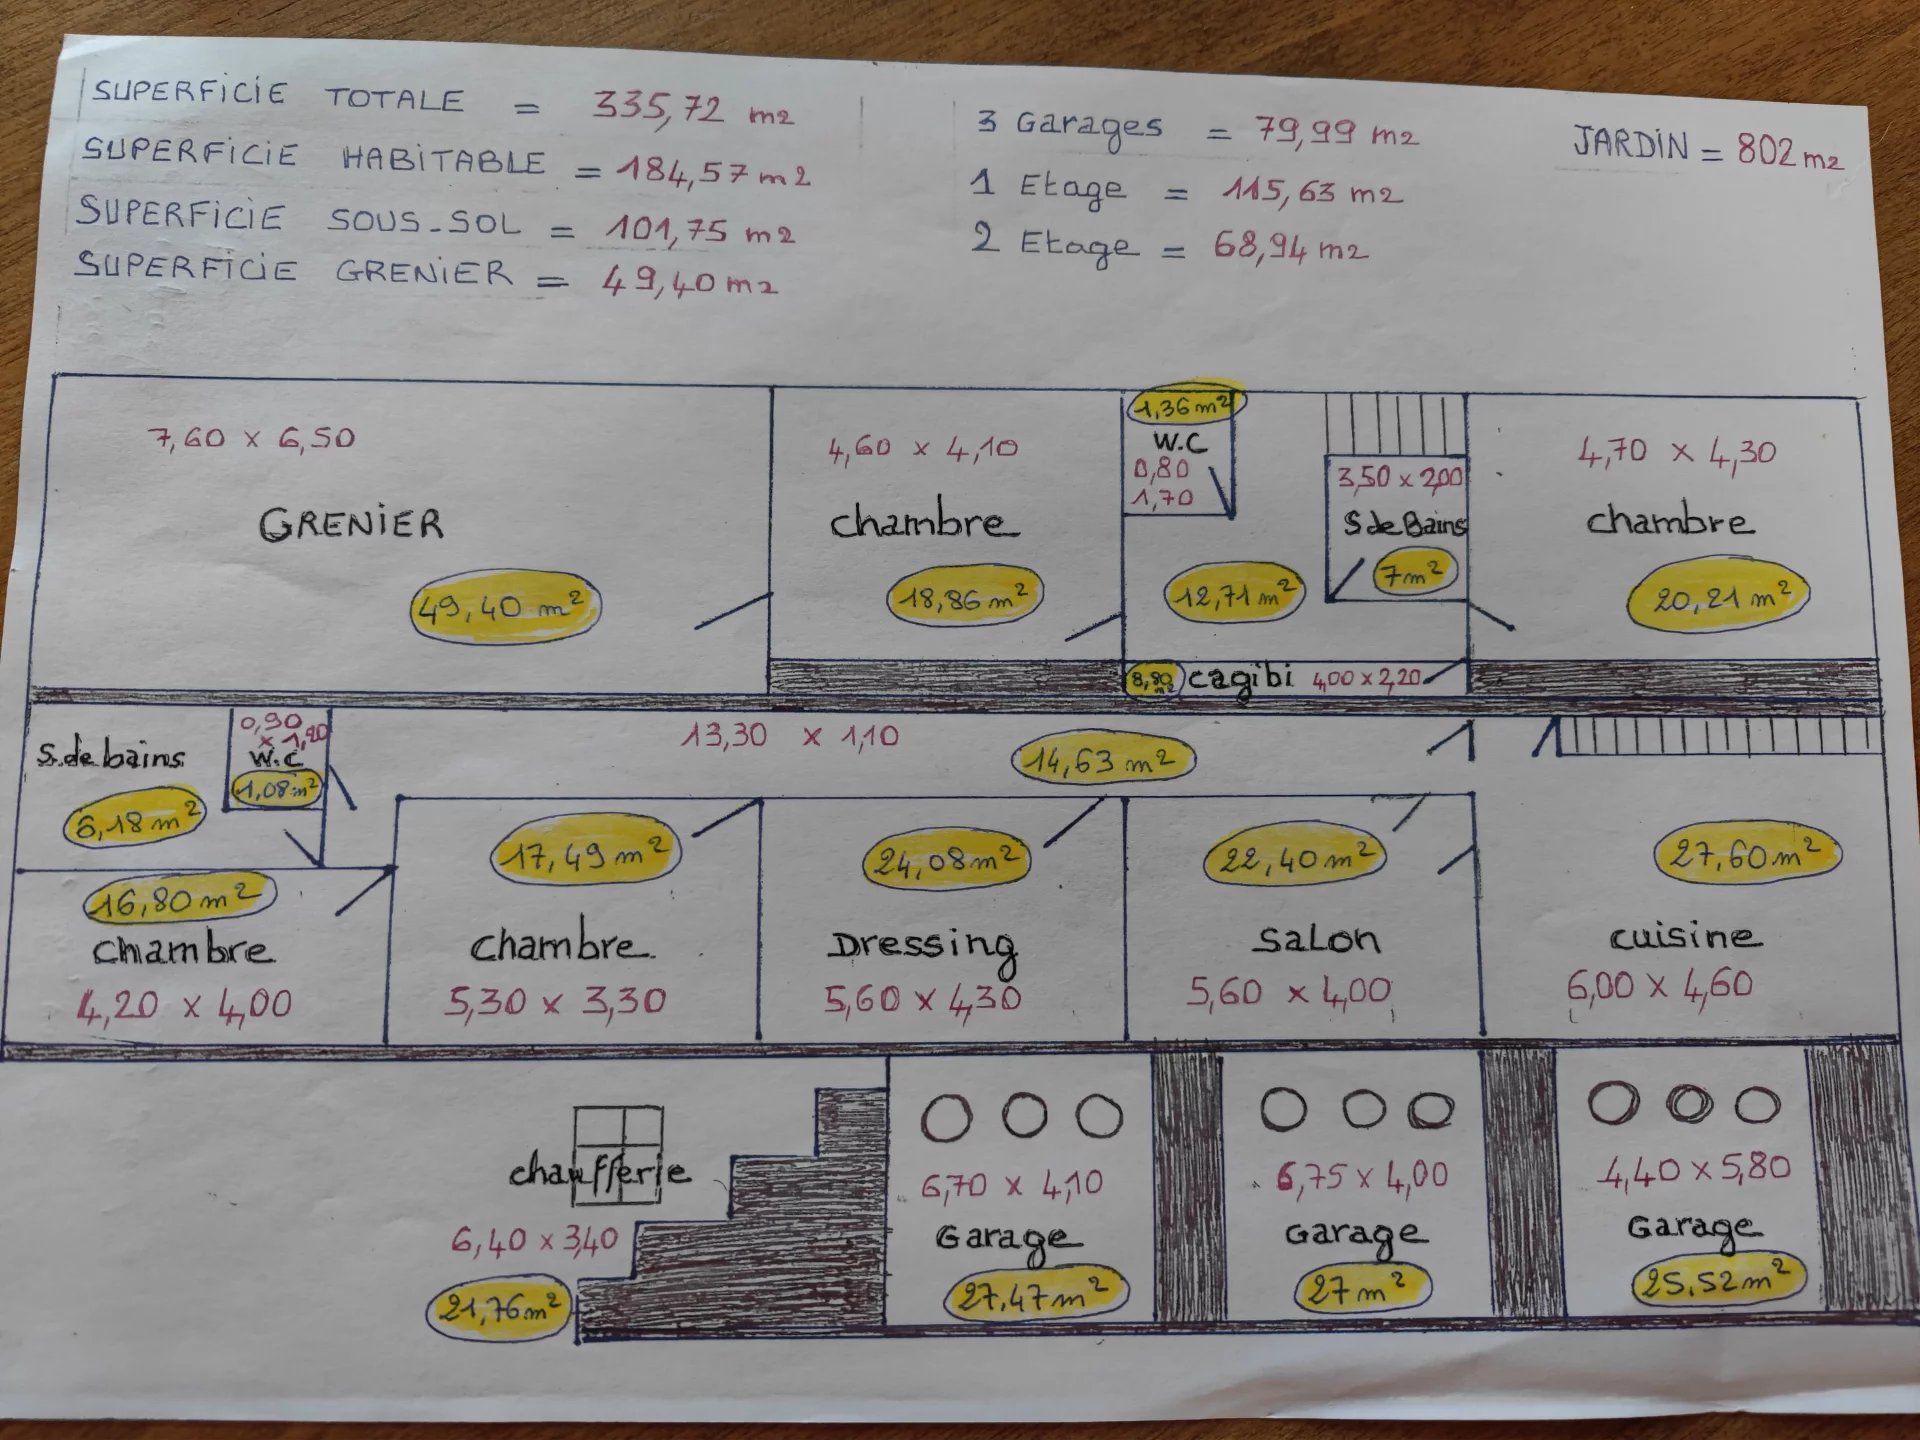 SUPERFICIE TOTALE = 335,72 m2
SUPERFICIE HABITABLE = 184,57 m2
SUPERFICIE SOUS-SOL = 101,75 m2
SUPERFICIE GRENIER = 49,40 m2
3 Garages = 79,99 m2
1 Etage = 115,63 m2
2 Etage = 68,94 m2
JARDIN = 802 m2
7,60 x 6,50
GRENIER
49,40 m²
4,60 x 4,10
chambre
18,86 m²
1,36 m²
W.C
0,80
1,70
12,71 m²
3,50 x 2,00
S de Bains
7 m²
4,70 x 4,30
chambre
20,21 m²
8,80 m²
cagibi 4,00 x 2,20
S. de bains
6,18 m²
0,90
x 1,20
W.C
1,08 m²
13,30 x 1,10
14,63 m²
16,80 m²
chambre
4,20 x 4,00
17,49 m²
chambre
5,30 x 3,30
24,08 m²
Dressing
5,60 x 4,30
22,40 m²
SALON
5,60 x 4,00
27,60 m²
cuisine
6,00 x 4,60
chaufferie
6,40 x 3,40
21,76 m²
6,70 x 4,10
Garage
27,47 m²
6,75 x 4,00
Garage
27 m²
4,40 x 5,80
Garage
25,52 m²